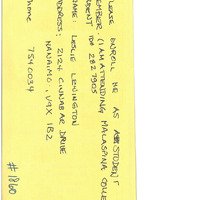 LEASE ENROLL ME AS A STUDENT
EMBER. (I AM ATTENDING MALASPINA COLLE
UDENT ID# 282 7905
NAME: LESLIE LEVINGTON
ADDRESS: 2124 CINNABAR DRIVE
NANAIMO, V9X 1B2
hone 754 0034
#1860